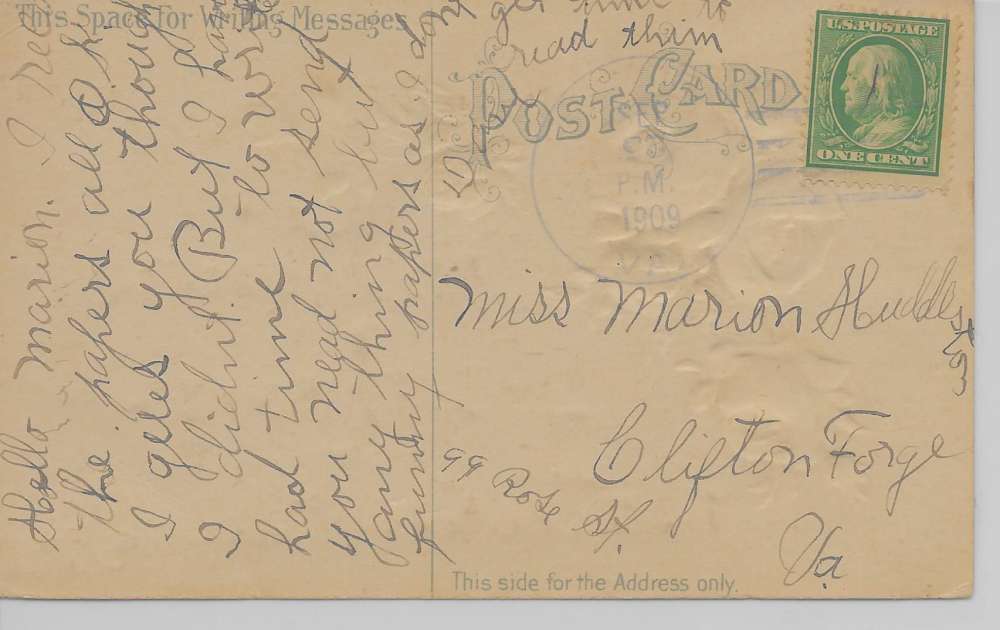 This Space for Writing Messages
Hello Marion. I rec
the papers all O.k.
I gues you though
I didnt. But I
had time to wr
you nead not send
any thing but
funny papers as I don't
get time to
read them
POST CARD
U.S. POSTAGE
ONE CENT
P.M.
1909
Miss Marion Huddleston
Clifton Forge
99 Rose St.
Va
This side for the Address only.